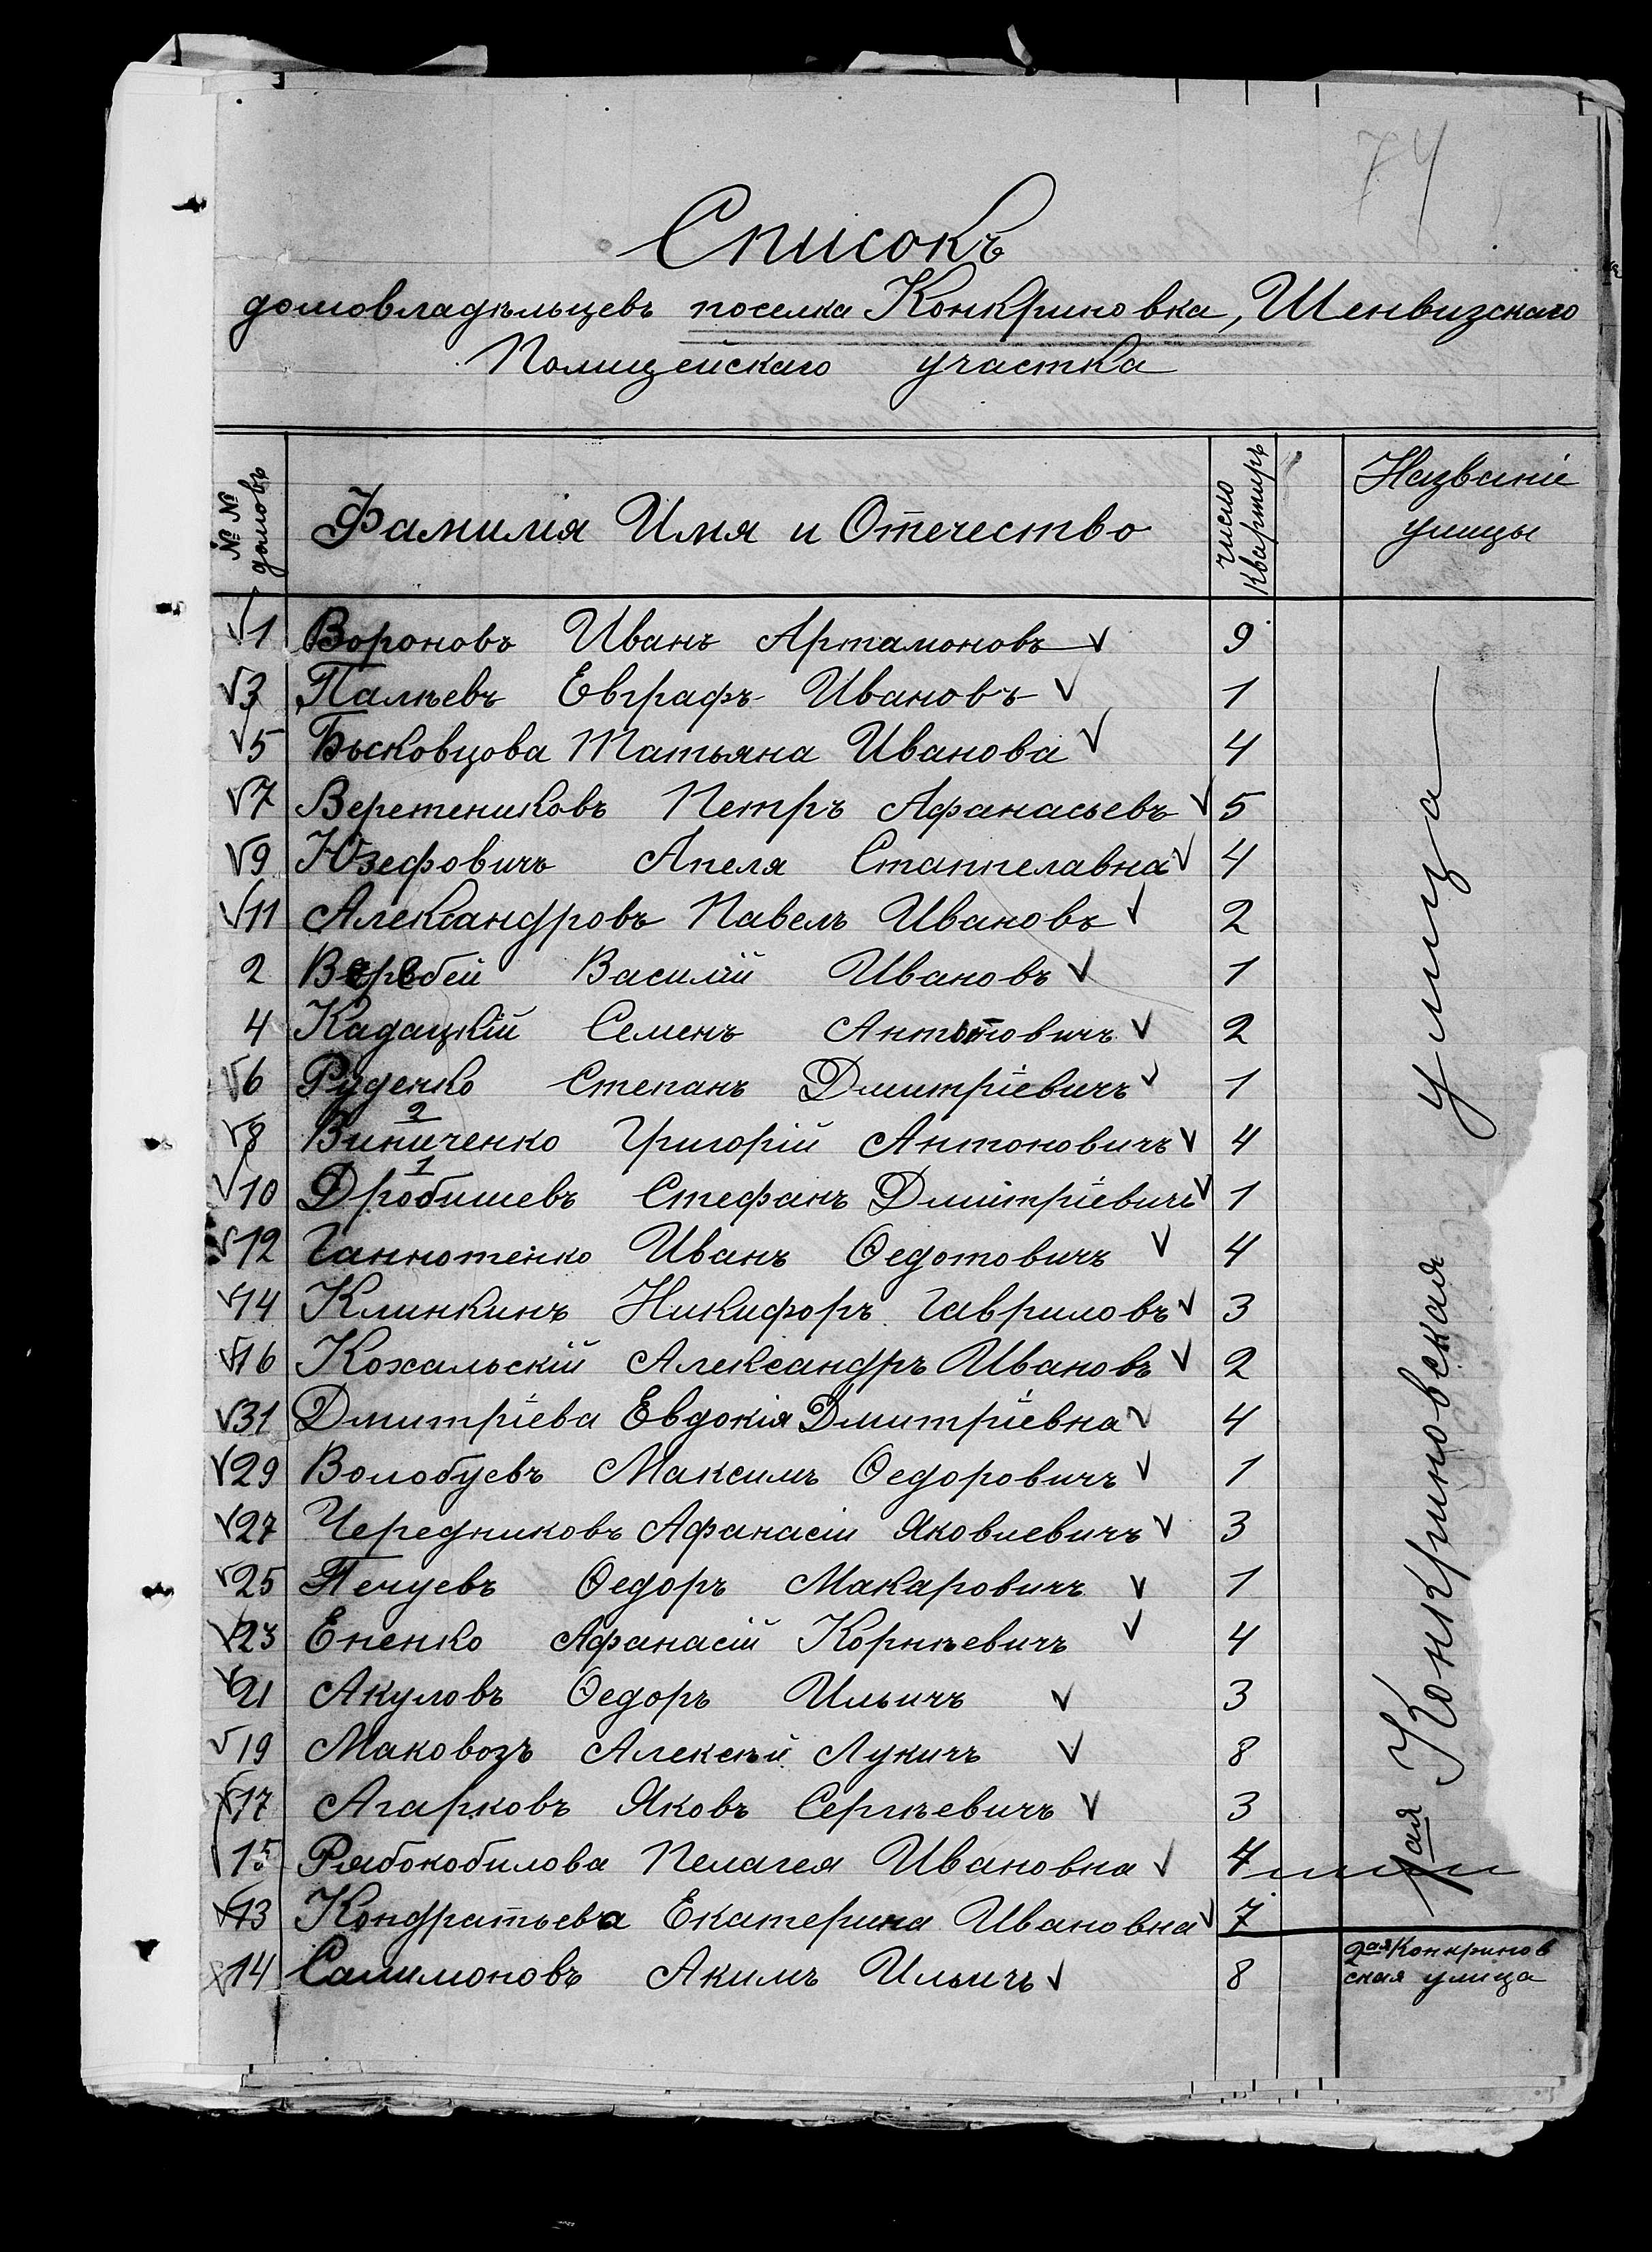 74
Списокъ
домовладѣльцевъ поселка Конкриновка, Шенвизскаго
Полицейскаго участка
№ № домовъ Фамилія Имя и Отечество число квартиръ Названіе улицы
1 Вороновъ Иванъ Артамоновъ 9
3 Палѣевъ Евграфъ Ивановъ 1
5 Бысковцова Татьяна Иванова 4
7 Веретениковъ Петръ Афанасьевъ 5
9 Юзефовичъ Анеля Станпелавна 4
11 Александровъ Павелъ Ивановъ 2
2 Василій Ивановъ 1
4 Кадацкій Семенъ 2
6 Руденко Степанъ Дмитріевичъ 1
2
8 Виниченко Григорій Антоновичъ 4
1
10 Дробишевъ Стефанъ Дмитріевичъ 1
12 Ганнотенко Иванъ Ѳедотовичъ 4
14 Клинкинъ Никифоръ Гавриловъ 3
16 Кохальскій Александръ Ивановъ 2
31 Дмитріева Евдокія Дмитріевна 4
29 Волобуевъ Максимъ Ѳедоровичъ 1
27 Чередниковъ Афанасій Яковлевичъ 3
25 Печуевъ Ѳедоръ Макаровичъ 1
23 Ененко Афанасій Корнѣевичъ 4
21 Акуловъ Ѳедоръ Ильичъ 3
19 Маковозъ Алексѣй Лукичъ 8
17 Агарковъ Яковъ Сергѣевичъ 3
15 Рябокобилова Пелагея Ивановна 4
13 Кондратьева Екатерина Ивановна 7
1ая Конкриновская улица
14 Салимоновъ Акимъ Ильичъ 8 2ая Конкринов
ская улица